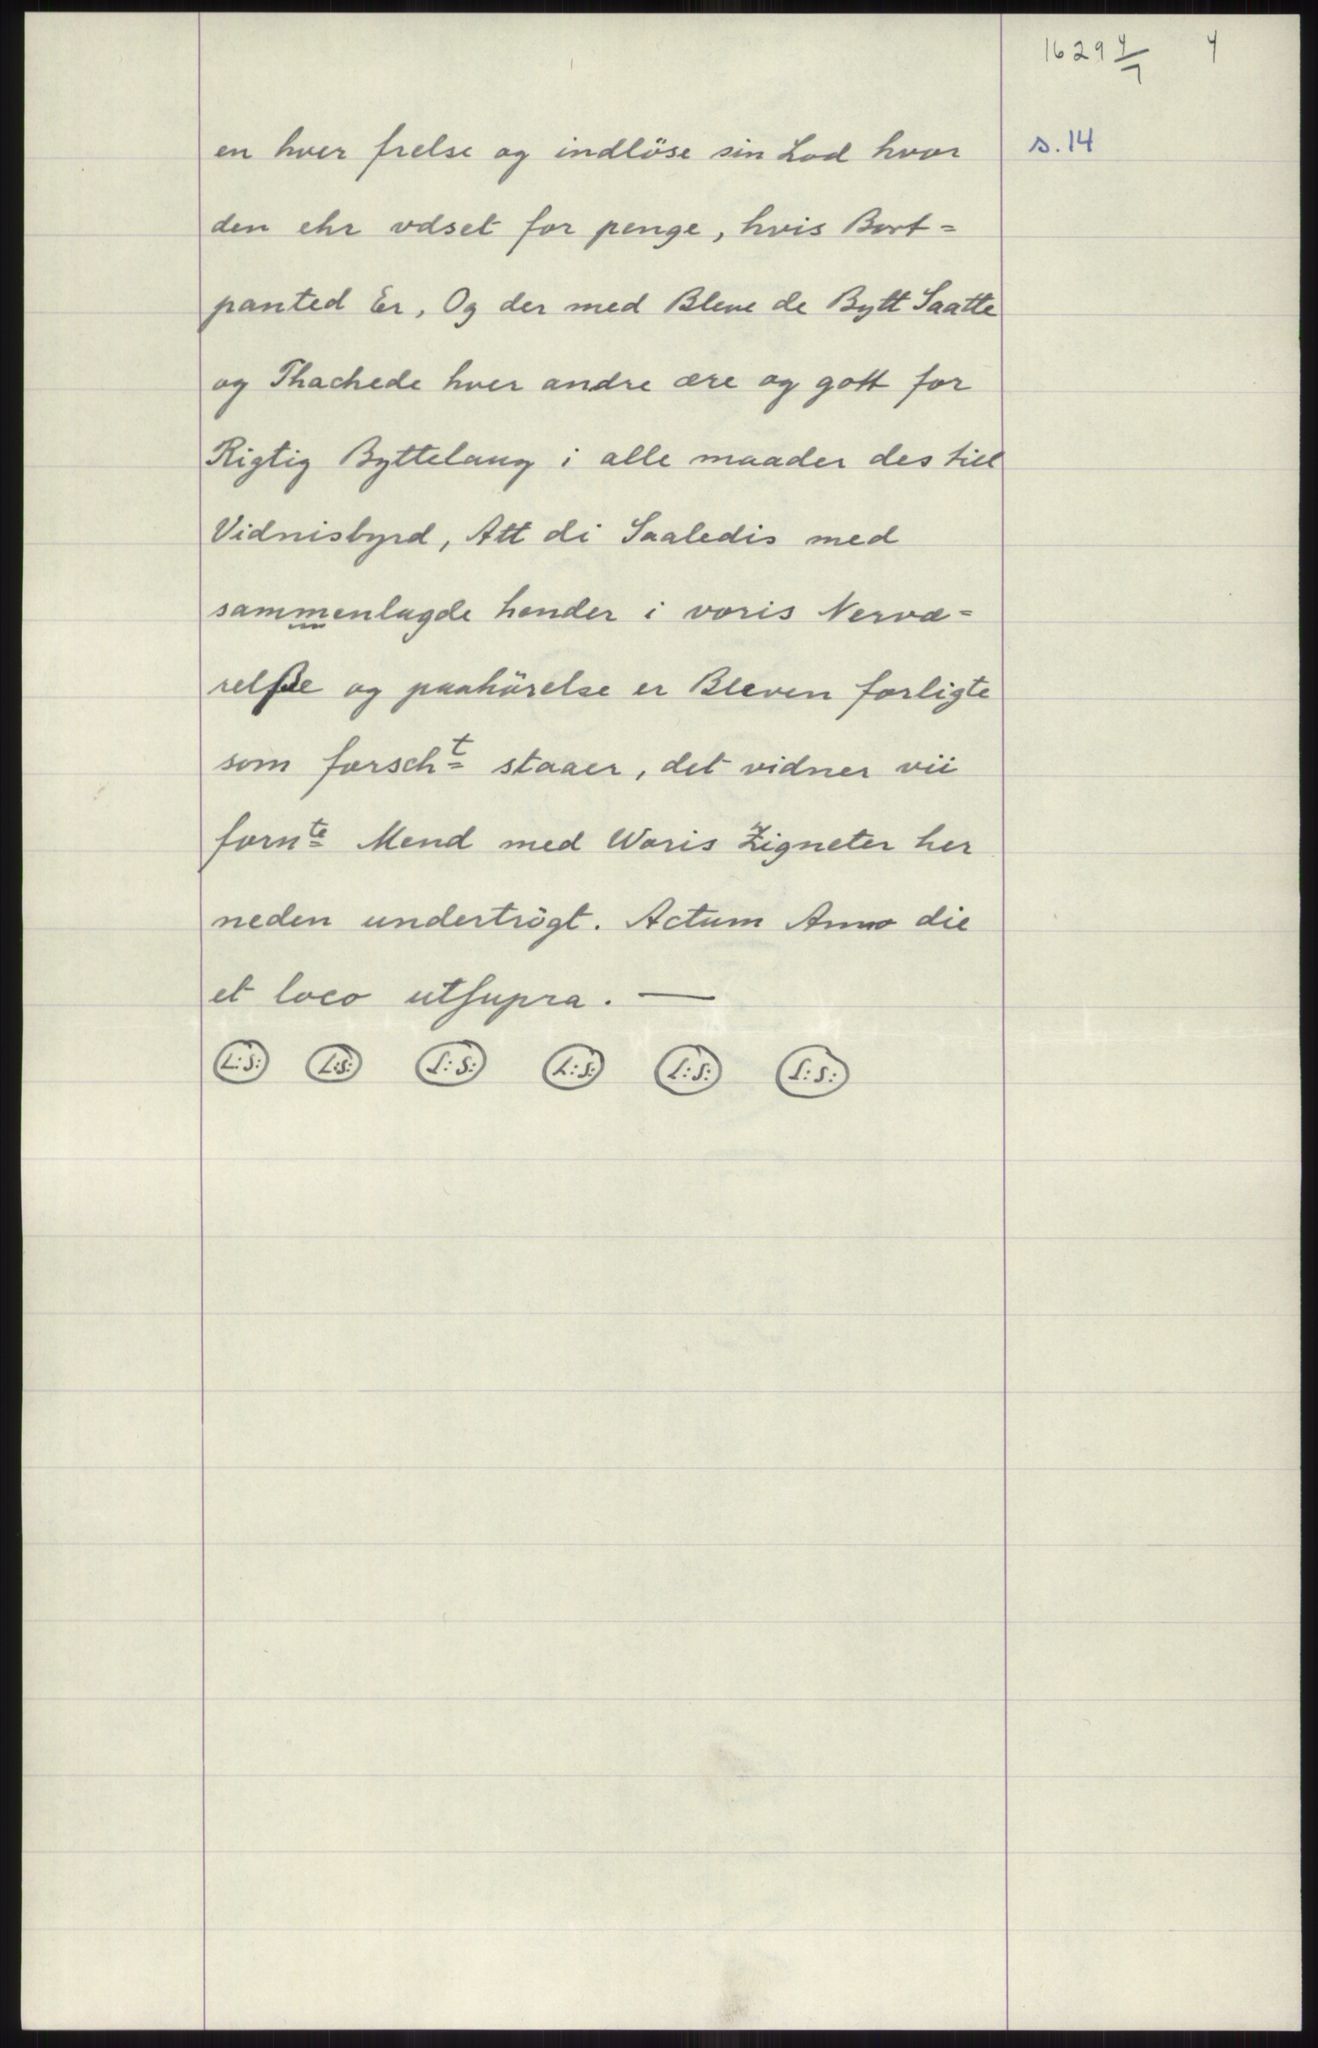 1629 4/7 4
s. 14
en hver frelse og indlöse sin Lod hvor
den ehr vdset for penge, hvis Bort=
panted Er, Og der med Bleve de Bytt Saatte
og Thachede hver andre ære og gott for
Rigtig Byttelaug i alle maader des till
Vidnisbyrd, Att di Saaledis med
sammenlagde hender i voris Nervæ=
relße og paahörelse er Bleven forligte
som forsch<sup>t</sup>= staaer, det vidner vii
forn<sup>te</sup>= Mend med Woris Zigneter her
neden undertrögt. Actum Anno die
et loco utsupra. —
L:S: L:S: L:S: L:S: L:S: L:S: